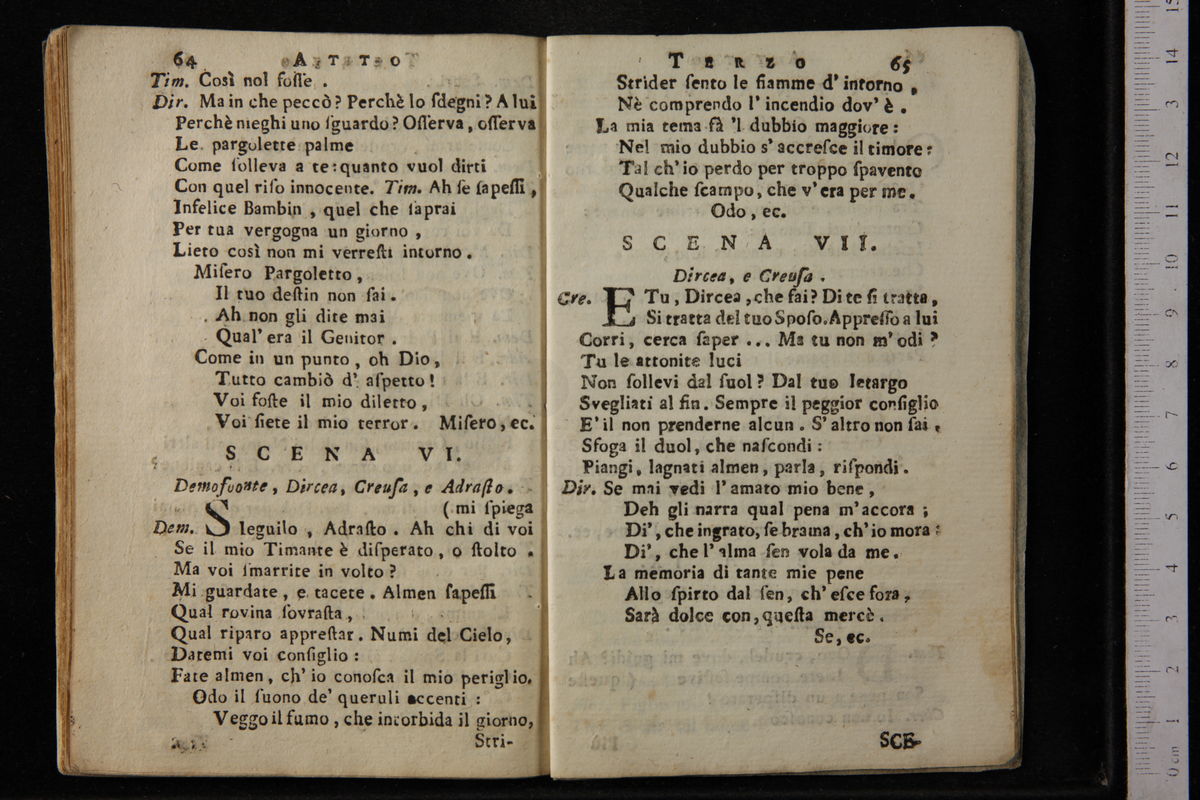 64 ATTO
Tim. Così nol foſſe .
Dir. Ma in che peccò ? Perchè lo ſdegni ? A lui
Perchè nieghi uno ſguardo ? Oſſerva , oſſerva
Le pargolette palme
Come ſolleva a te : quanto vuol dirti
Con quel riſo innocente. Tim. Ah ſe ſapeſſi ,
Infelice Bambin , quel che ſaprai
Per tua vergogna un giorno ,
Lieto così non mi verreſti intorno .
Miſero Pargoletto ,
Il tuo deſtin non ſai .
Ah non gli dite mai
Qual' era il Genitor .
Come in un punto , oh Dio ,
Tutto cambiò d' aſpetto !
Voi foſte il mio diletto ,
Voi ſiete il mio terror . Miſero, ec.
SCENA VI.
Demofoonte , Dircea, Creuſa , e Adraſto .
( mi ſpiega
Dem. Sieguilo , Adraſto . Ah chi di voi
Se il mio Timante è diſperato , o ſtolto .
Ma voi ſmarrite in volto ?
Mi guardate , e tacete . Almen ſapeſſi
Qual rovina ſovraſta ,
Qual riparo appreſtar . Numi del Cielo ,
Datemi voi conſiglio :
Fate almen , ch' io conoſca il mio periglio.
Odo il ſuono de' queruli accenti :
Veggo il fumo , che intorbida il giorno,
Stri-
TERZO 65
Strider ſento le fiamme d' intorno ,
Nè comprendo l' incendio dov' è .
La mia tema fà 'l dubbio maggiore :
Nel mio dubbio s' accreſce il timore :
Tal ch' io perdo per troppo ſpavento
Qualche ſcampo, che v' era per me.
Odo , ec.
SCENA VII.
Dircea, e Creuſa .
Cre. E Tu , Dircea , che fai ? Di te ſi tratta ,
Si tratta del tuo Spoſo. Appreſſo a lui
Corri, cerca ſaper ... Ma tu non m' odi ?
Tu le attonite luci
Non ſollevi dal ſuol ? Dal tuo letargo
Svegliati al fin. Sempre il peggior conſiglio
E' il non prenderne alcun . S' altro non ſai ,
Sfoga il duol, che naſcondi :
Piangi, lagnati almen, parla, riſpondi .
Dir. Se mai vedi l' amato mio bene ,
Deh gli narra qual pena m' accora ;
Di', che ingrato, ſe brama, ch' io mora :
Di', che l' alma ſen vola da me .
La memoria di tante mie pene
Allo ſpirto dal ſen, ch' eſce fora ,
Sarà dolce con, queſta mercè .
Se, ec.
SCE-